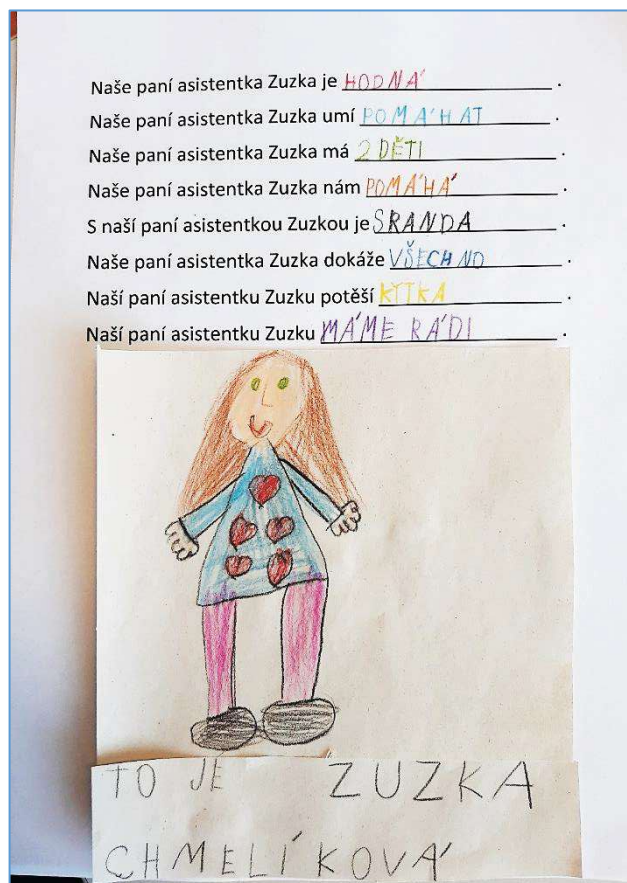 Naše paní asistentka Zuzka je HODNÁ.
Naše paní asistentka Zuzka umí POMÁHAT.
Naše paní asistentka Zuzka má 2 DĚTI.
Naše paní asistentka Zuzka nám POMÁHÁ.
S naší paní asistentkou Zuzkou je SRANDA.
Naše paní asistentka Zuzka dokáže VŠECHNO.
Naší paní asistentku Zuzku potěší KYTKA.
Naší paní asistentku Zuzku MÁME RÁDI.
TO JE ZUZKA
CHMELÍKOVÁ